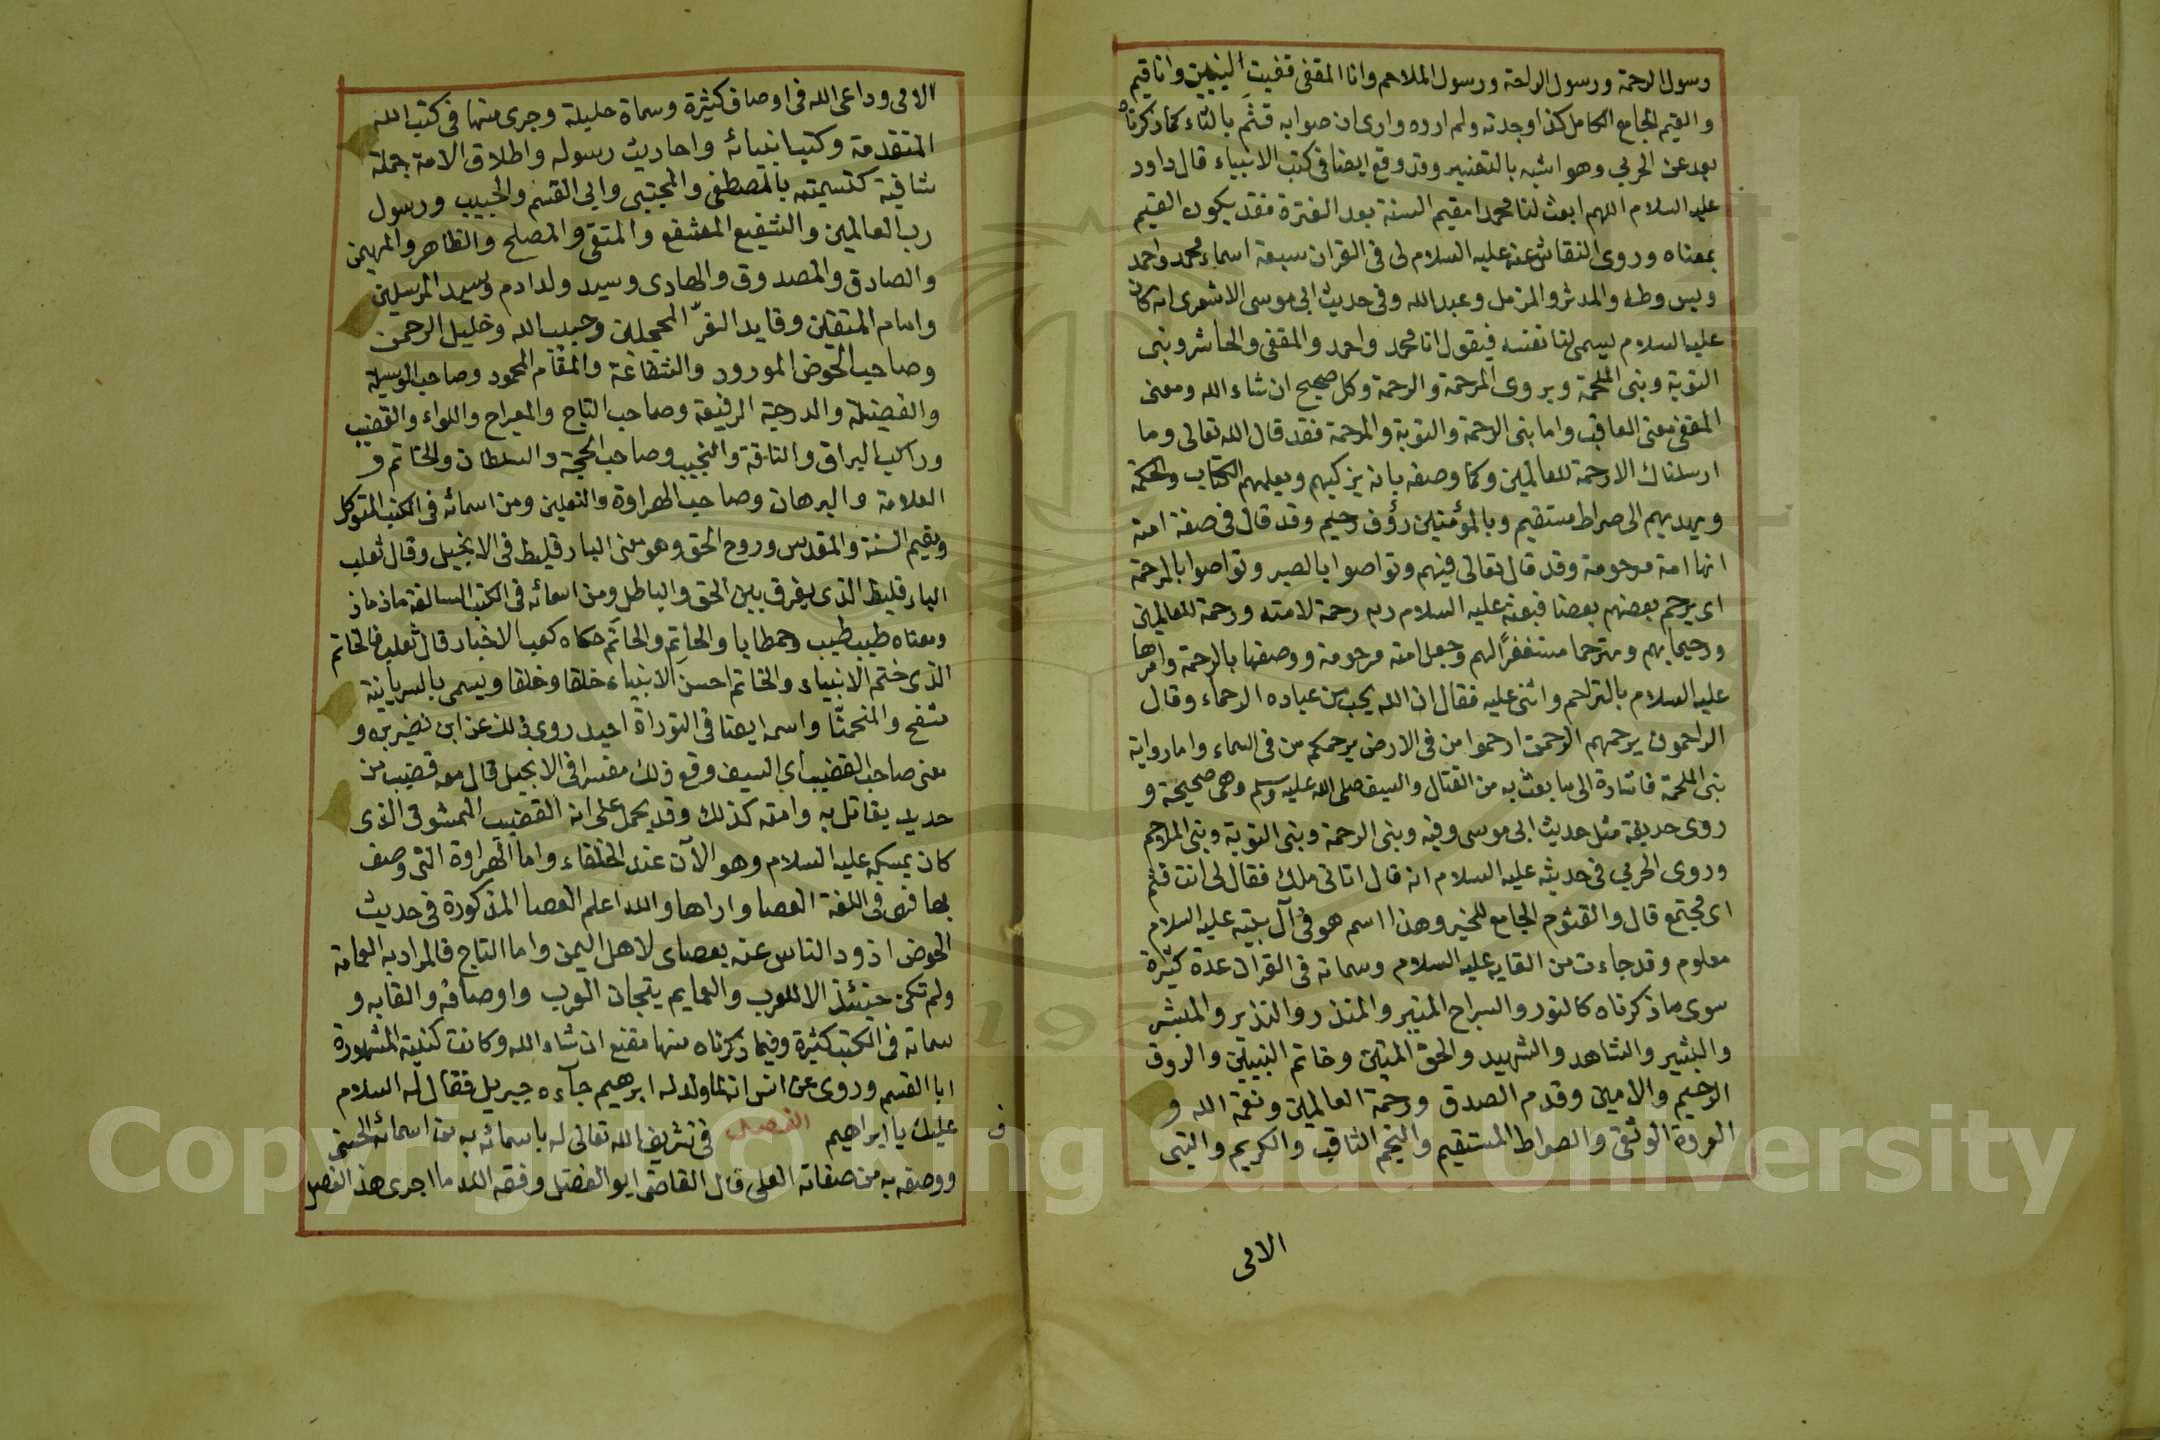 رسول الرحمة ورسول الراحة ورسول الملاحم وانا المقفى قفيت النبيين وانا قيم
والقيم الجامع الكامل كذا وجدته ولم اروه وارى ان صوابه قثم بالثاء كما ذكرناه
بعد عن الحربي وهو اشبه بالتفسير وقد وقع ايضا في كتب الانبياء قال داود
عليه السلام اللهم ابعث لنا محمدا مقيم السنة بعد الفترة فقد يكون القيم
بمعناه وروى النقاش عنه عليه السلام لى في القران سبعة اسماء محمد واحمد
ويس وطه والمدثر والمزمل وعبد الله وفي حديث ابى موسى الاشعرى انه كان
عليه السلام يسمى لنا نفسه فيقول انا محمد واحمد والمقفى والحاشر ونبى
التوبة ونبى الملحمة ويروى المرحمة والرحمة وكل صحيح ان شاء الله ومعنى
المقفى معنى العاقب واما نبى الرحمة والتوبة والمرحمة فقد قال الله تعالى وما
ارسلناك الا رحمة للعالمين وكما وصفه بانه يزكيهم ويعلمهم الكتاب والحكمة
ويهديهم الى صراط مستقيم وبالمؤمنين رؤف رحيم وقد قال في صفة امته
انها امة مرحومة وقد قال تعالى فيهم وتواصوا بالصبر وتواصوا بالمرحمة
اى يرحم بعضهم بعضا فبعثه عليه السلام ربه رحمة لامته ورحمة للعالمين
ورحيما بهم ومترحما مستغفرًا لهم وجعل امته مرحومة ووصفها بالرحمة وامرها
عليه السلام بالتراحم واثنى عليه فقال ان الله يحب من عباده الرحماء وقال
الراحمون يرحمهم الرحمن ارحموا من فى الارض يرحمكم من فى السماء واما رواية
نبى الملحمة فاشارة الى ما بعث به من القتال والسيف صلى الله عليه وسلم وهى صحيحة و
روى حذيفة مثل حديث ابى موسى وفيه ونبى الرحمة ونبى التوبة ونبى الملاحم
وروى الحربي في حديثه عليه السلام انه قال اتانى ملك فقال لى انت قثم
اى مجتمع قال والقثوم الجامع للخير وهذا اسم هو في آل بيته عليه السلام
معلوم وقد جاءت من القابه عليه السلام وسماته في القران عدة كثيرة
سوى ما ذكرناه كالنور والسراج المنير والمنذر والنذير والمبشر
والبشير والشاهد والشهيد والحق المبين وخاتم النبيين والروف
الرحيم والامين وقدم الصدق ورحمة العالمين ونعمة الله و
العروة الوثقى والصراط المستقيم والنجم الثاقب والكريم والنبى
الامى
الامى وداعى الله فى اوصاف كثيرة وسماة جليلة وجرى منها فى كتب الله
المتقدمة وكتب انبيائه واحاديث رسوله واطلاق الامة جملة
شافية كتسميته بالمصطفى والمجتبى وابى القسم والحبيب ورسول
رب العالمين والشفيع المشفع والمتقى والمصلح والظاهر والمهيمن
والصادق والمصدوق والهادى وسيد ولد ادم وسيد المرسلين
وامام المتقين وقايد الغرّ المحجلين وحبيب الله وخليل الرحمن
وصاحب الحوض المورود والشفاعة والمقام المحمود وصاحب الوسيلة
والفضيلة والدرجة الرفيعة وصاحب التاج والمعراج واللواء والقضيب
وراكب البراق والناقة والنجيب وصاحب الحجة والسلطان والخاتم و
العلامة والبرهان وصاحب الهراوة والنعلين ومن اسمائه فى الكتب المتوكل
ومقيم السنة والمقدس وروح الحق وهو معنى البارقليط فى الانجيل وقال ثعلب
البارقليط الذى يفرق بين الحق والباطل ومن اسمائه فى الكتب السالفة ماذ ماذ
ومعناه طيب طيب وحمطايا والخاتِم والخاتَم حكاه كعب الاخبار قال ثعلب فالخاتم
الذى ختم الانبياء والخاتم احسن الانبياء خلقا وخلقا ويسمى بالسريانية
مشفح والمنحمنّا واسمه ايضا في التوراة احيد روى ذلك عن ابن
معنى صاحب القضيب اى السيف وقع ذلك مفسرا فى الانجيل قال معه قضيب من
حديد يقاتل به وامته كذلك وقد يحمل على انه القضيب الممشوق الذى
كان يمسكه عليه السلام وهو الآن عند الخلفاء واما الهراوة التى وصف
بها فهى في اللغة العصا واراها والله اعلم العصا المذكورة فى حديث
الحوض اذود الناس عنه بعصاى لاهل اليمن واما التاج فالمراد به العمامة
ولم تكن حينئذ الا للعرب والعمايم يتجان العرب واوصافه والقابه و
سماته فى الكتب كثيرة وفيما ذكرناه منها مقنع ان شاء الله وكانت كنيته المشهورة
ابا القسم وروى عن انس انه لما ولد له ابرهيم جآءه جبريل فقال له السلام
عليك يا ابراهيم الفصل فى تشريف الله تعالى له باسمائه به من اسمائه الحسنى
ووصفه به من صفاته العلى قال القاضى ابو الفضل وفقه الله ما اجرى هذ الفصل
ف
Copyright © King Saud University
1957